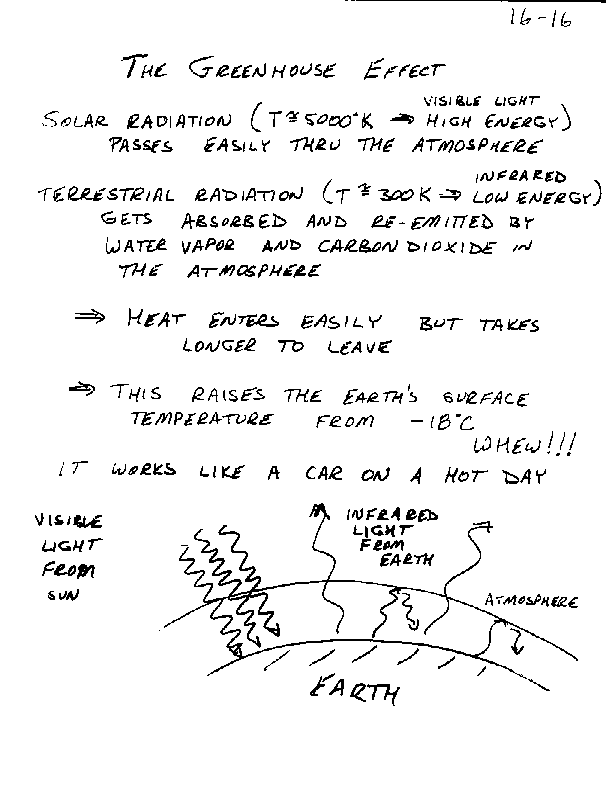 16-16
THE GREENHOUSE EFFECT
VISIBLE LIGHT
SOLAR RADIATION (T ≅ 5000°K ⇒ HIGH ENERGY)
PASSES EASILY THRU THE ATMOSPHERE
INFRARED
TERRESTRIAL RADIATION (T ≅ 300K ⇒ LOW ENERGY)
GETS ABSORBED AND RE-EMITTED BY
WATER VAPOR AND CARBON DIOXIDE IN
THE ATMOSPHERE
⇒ HEAT ENTERS EASILY BUT TAKES
LONGER TO LEAVE
⇒ THIS RAISES THE EARTH'S SURFACE
TEMPERATURE FROM -18°C
WHEW!!!
IT WORKS LIKE A CAR ON A HOT DAY
VISIBLE
LIGHT
FROM
SUN
INFRARED
LIGHT
FROM
EARTH
ATMOSPHERE
EARTH